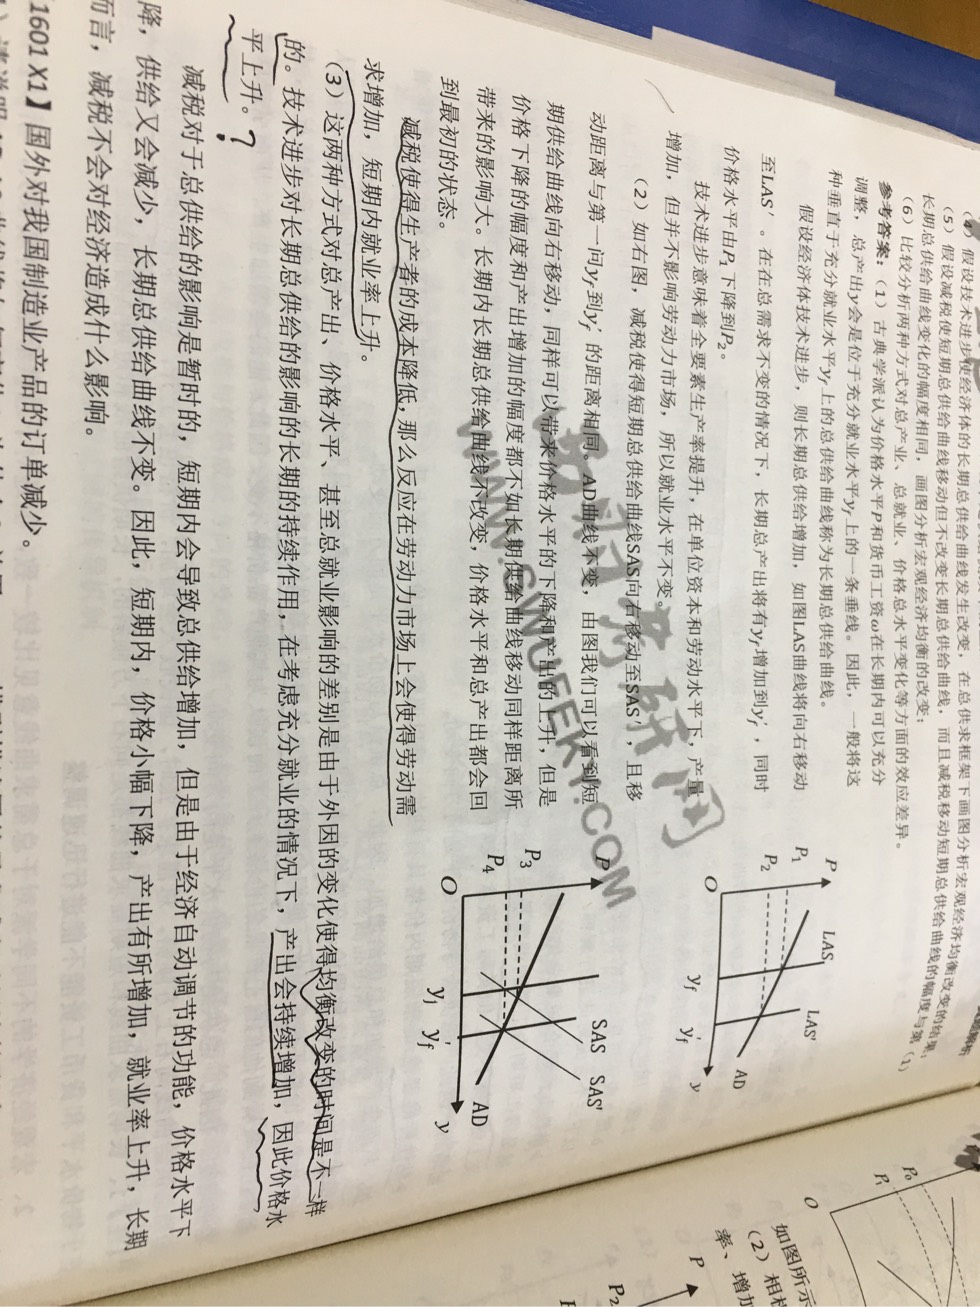 (4) 假设技术进步使经济体的长期总供给曲线发生改变，在总供求框架下画图分析宏观经济均衡改变的结果；
(5) 假设减税使短期总供给曲线移动但不改变长期总供给曲线，而且减税移动短期总供给曲线的幅度与第（1）
长期总供给曲线变化的幅度相同，画图分析宏观经济均衡的改变；
(6) 比较分析两种方式对总产业、总就业、价格总水平变化等方面的效应差异。
参考答案：（1）古典学派认为价格水平P和货币工资ω在长期内可以充分
调整，总产出y会是位于充分就业水平yf上的一条垂线。因此，一般将这
种垂直于充分就业水平yf上的总供给曲线称为长期总供给曲线。
假设经济体技术进步，则长期总供给增加，如图LAS曲线将向右移动
至LAS′。在在总需求不变的情况下，长期总产出将有yf增加到yf′，同时
价格水平由P1下降到P2。
技术进步意味着全要素生产率提升，在单位资本和劳动水平下，产量
增加，但并不影响劳动力市场，所以就业水平不变。
（2）如右图，减税使得短期总供给曲线SAS向右移动至SAS′，且移
动距离与第一问yf到yf′的距离相同。AD曲线不变，由图我们可以看到短
期供给曲线向右移动，同样可以带来价格水平的下降和产出的上升，但是
价格下降的幅度和产出增加的幅度都不如长期供给曲线移动同样距离所
带来的影响大。长期内长期总供给曲线不改变，价格水平和总产出都会回
到最初的状态。
减税使得生产者的成本降低，那么反应在劳动力市场上会使得劳动需
求增加，短期内就业率上升。
（3）这两种方式对总产出、价格水平、甚至总就业影响的差别是由于外因的变化使得均衡改变的时间是不一样
的。技术进步对长期总供给的影响的长期的持续作用，在考虑充分就业的情况下，产出会持续增加，因此价格水
平上升。？
减税对于总供给的影响是暂时的，短期内会导致总供给增加，但是由于经济自动调节的功能，价格水平下
降，供给又会减少，长期总供给曲线不变。因此，短期内，价格小幅下降，产出有所增加，就业率上升，长期
而言，减税不会对经济造成什么影响。
1601 X1】国外对我国制造业产品的订单减少。
P
LAS
LAS′
P1
P2
O
yf
yf′
y
AD
P
SAS
SAS′
P3
P4
O
y1
yf′
y
AD
WWW.GWUEEKY.COM
P0
P1
O
如图所示
（2）相
率、增加
P
P2